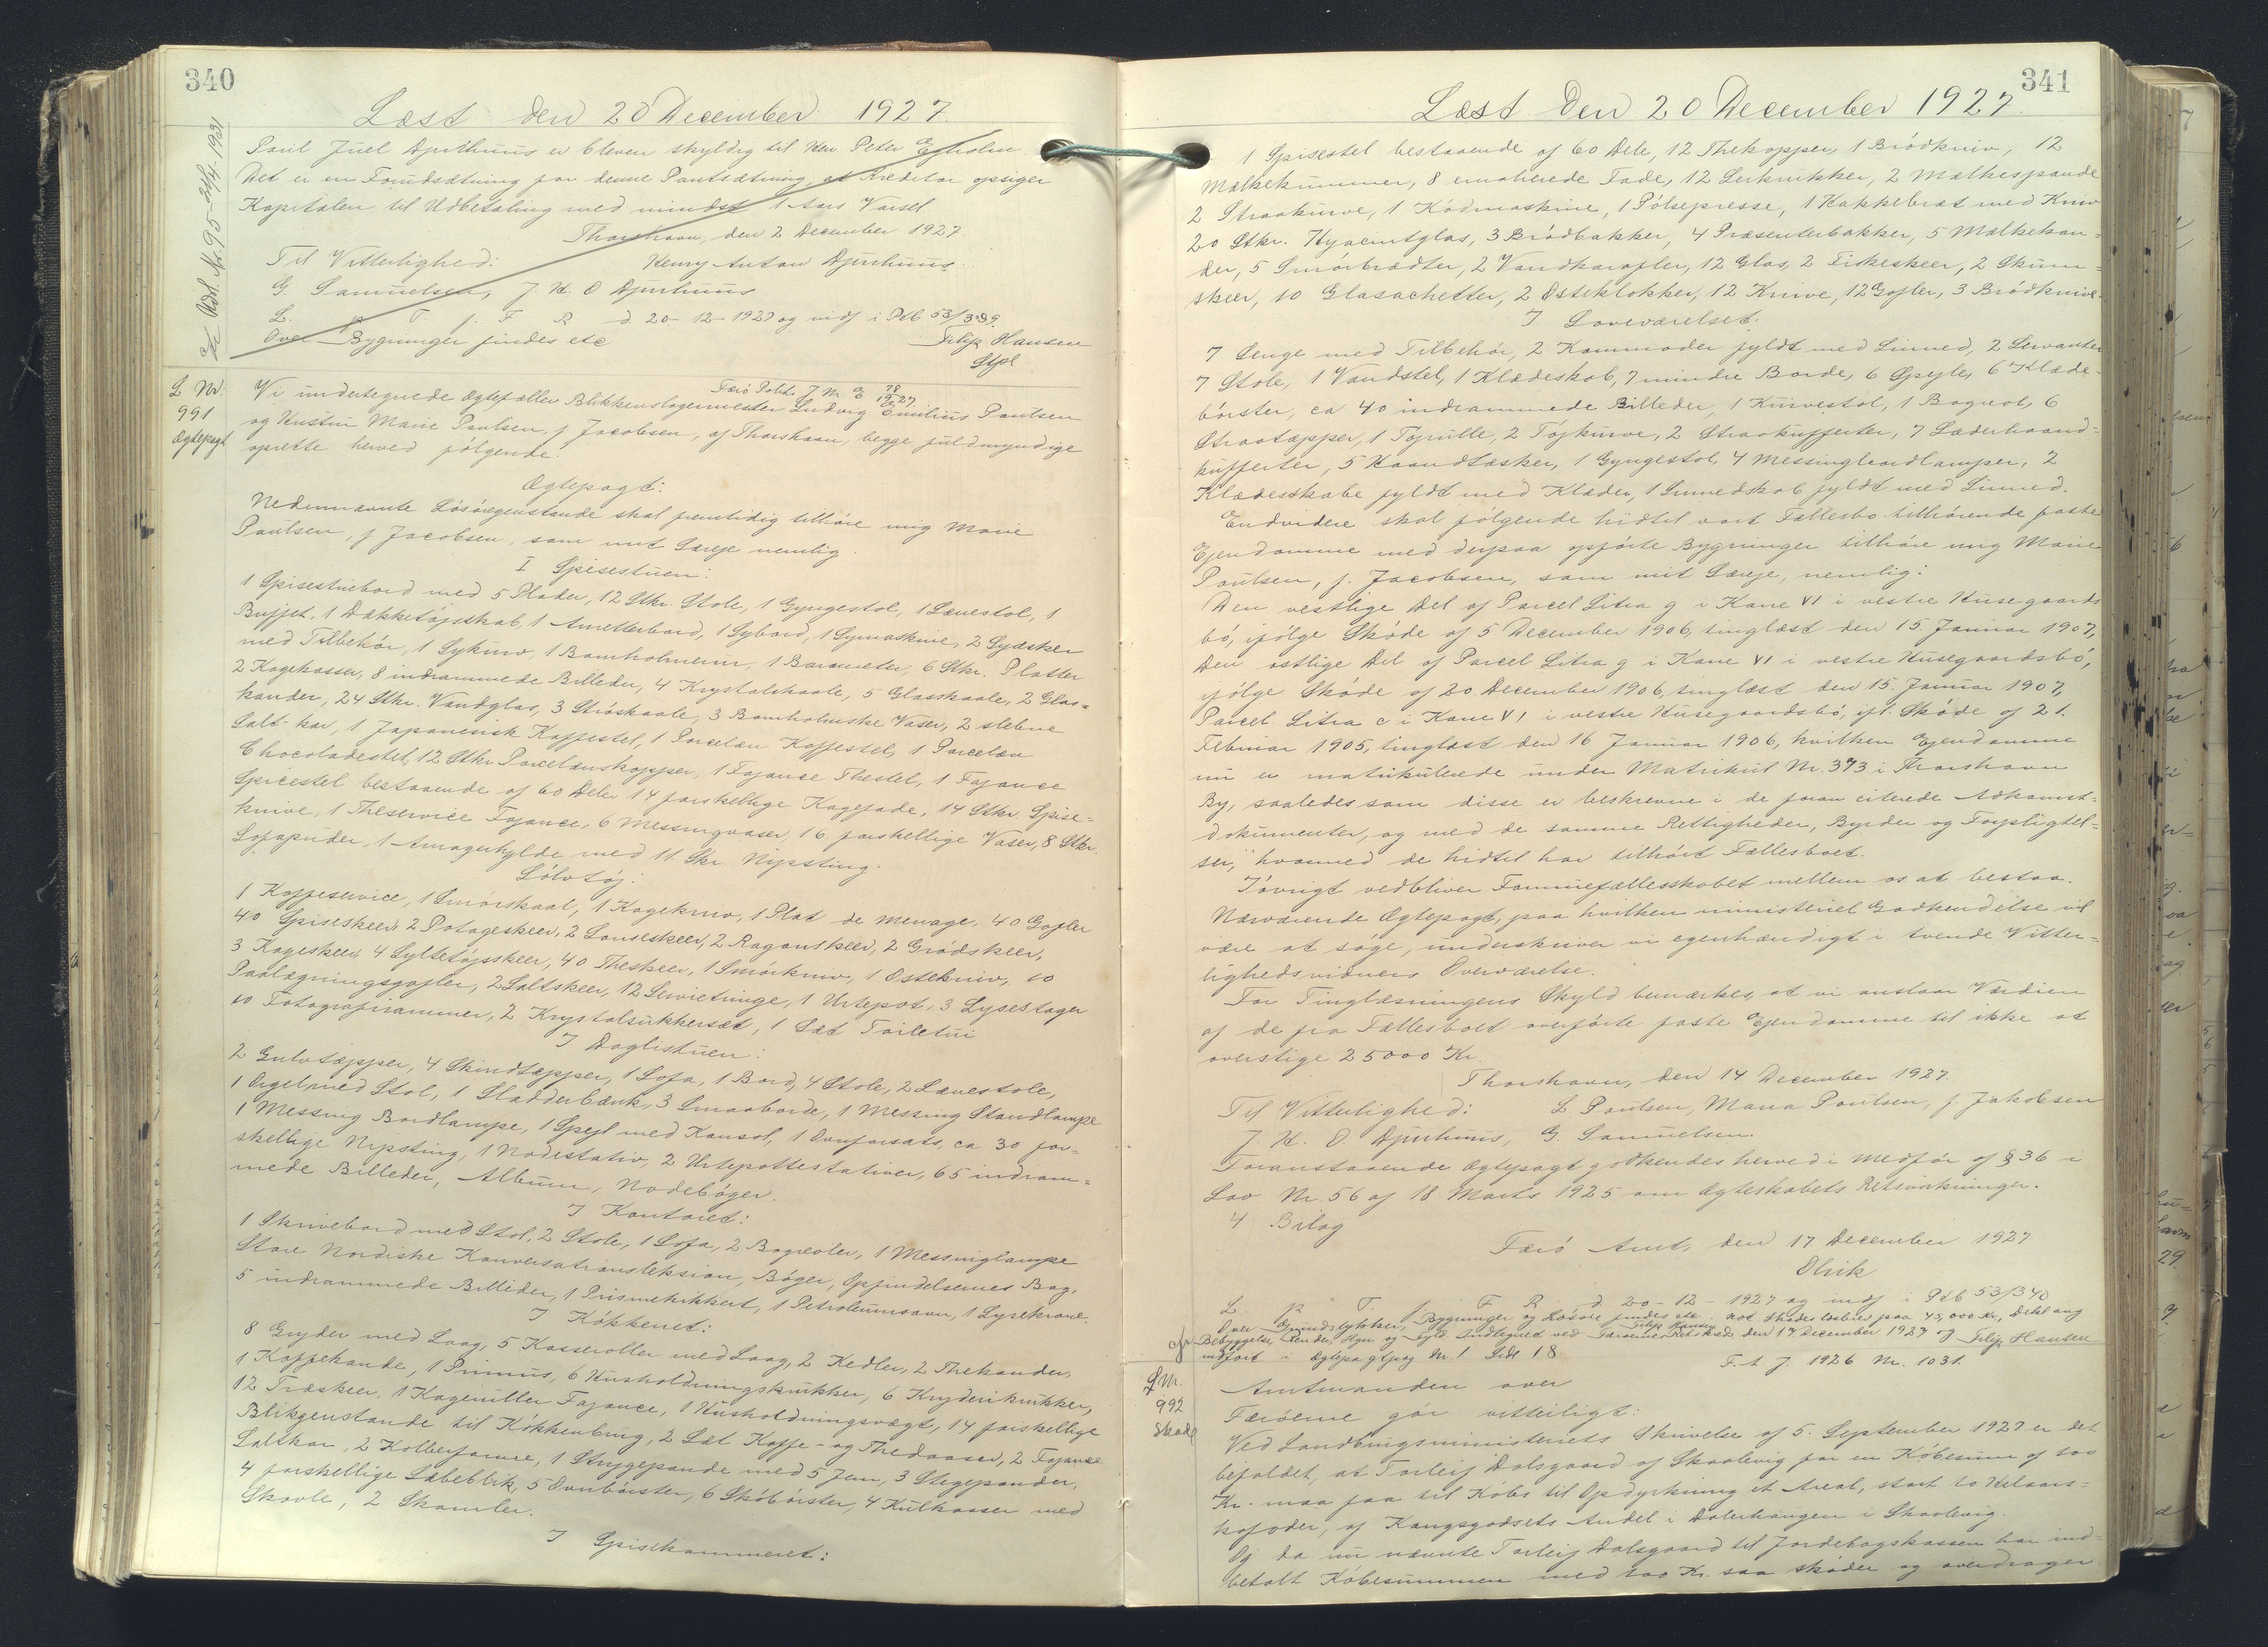 340
Læst den 20 December 1927.
cfr Adl. Nr. 95 - 30/4 - 1931
Poul Juel Djurhuus er bleven skyldig til Herr Peter Ejholm
Det er en Forudsætning for denne Pantsætning, at Kreditor opsiger
Kapitalen til Udbetaling med mindst 1 Aars Varsel
Thorshavn, den 2 December 1927
Til Vitterlighed: Henry Anton Djurhuus.
G. Samuelsen, J. H. O Djurhuus
L. p. T. f. F R d 20-12-1927 og indf i Ptb 53/339.
Over Bygninger findes etc Filip Hansen
Stfl
L Nr. 991 Ægtepagt
Færø Politi J Nr E 78/1927
Vi undertegnede Ægtefæller Blikkenslagermester Ludvig Emilius Poulsen
og Hustru Marie Poulsen, f Jacobsen, af Thorshavn, begge fuldmyndige
oprette herved følgende:
Ægtepagt:
Nedennævnte Løsøregenstande skal fremtidig tilhøre mig Marie
Poulsen, f Jacobsen, som mit Særeje nemlig.
I Spisestuen:
1 Spisestuebord med 5 Plader, 12 Stkr. Stole, 1 Gyngestol, 1 Lænestol, 1
Buffet, 1 Dækketøjsskab, 1 Anretterbord, 1 Sybord, 1 Symaskine, 2 Syæsker
med Tilbehør, 1 Sykurv, 1 Bornholmerur, 1 Barometer, 6 Stkr. Platter
2 Kagekasser, 8 indrammede Billeder, 4 Krystalskaale, 5 Glasskaale, 2 Glas=
kander, 24 Stkr. Vandglas, 3 Strøskaale, 3 Bornholmske Vaser, 2 slebne
Salt-kar, 1 Japanesisk Kaffestel, 1 Porcelæn Kaffestel, 1 Porcelæn
Chocoladestel, 12 Stkr Porcelænskopper, 1 Fajance Thestel, 1 Fajance
Spicestel bestaaende af 60 Dele, 14 forskellige Kagefade, 14 Stkr. Spise=
knive, 1 Theservice Fajance, 6 Messingvaser, 16 forskellige Vaser, 8 Stkr.
Sofapuder, 1 Amagerhylde med 11 Skr. Nipsting.
Sølvtøj:
1 Kaffeservice, 1 Smørskaal, 1 Kagekniv, 1 Plat de menage, 40 Gafler
40 Spiseskeer, 2 Potageskeer, 2 Sauseskeer, 2 Ragouskeer, 2 Grødskeer,
3 Kageskeer, 4 Syltetøjsskeer, 40 Theskeer, 1 Smørkniv, 1 Ostekniv, 10
Paalægningsgafler, 2 Saltskeer, 12 Servietringe, 1 Urtepot, 3 Lysestager
10 Fotografirammer, 2 Krystalsukkersæt, 1 Sæt Toiletui
I Daglistuen:
2 Gulvtæpper, 4 Skindtæpper, 1 Sofa, 1 Bord, 4 Stole, 2 Lænestole,
1 Orgel med Stol, 1 Sladderbænk, 3 Smaaborde, 1 Messing Standlampe
1 Messing Bordlampe, 1 Spejl med Konsol, 1 Ovnforsats, ca 30 for=
skellige Nipsting, 1 Nodestativ, 2 Urtepottestativer, 65 indram=
mede Billeder, Album, Nodebøger.
I Kontoret:
1 Skrivebord med Stol, 2 Stole, 1 Sofa, 2 Bogreoler, 1 Messinglampe
Store Nordiske Konversationsleksion, Bøger, Opfindelsernes Bog,
5 indrammede Billeder, 1 Prismekikkert, 1 Petroleumsovn, 1 Lysekrone.
I Køkkenet:
8 Gryder med Laag, 5 Kasseroller med Laag, 2 Kedler, 2 Thekander,
1 Kaffekande, 1 Primus, 6 Husholdningskrukker, 6 Kryderikrukker,
12 Træskeer, 1 Kagerulle Fajance, 1 Husholdningsvægt, 14 forskellige
Blikgenstande til Køkkenbrug, 2 Sæt Kaffe- og Thedaaser, 2 Fajance
Saltkar, 2 Kolberforme, 1 Strygepande med 5 Jern, 3 Stegepander,
4 forskellige Sæbeblik, 5 Ovnbørster, 6 Skobørster, 4 Kulkasser med
Skovle, 2 Skamler.
I Spisekammeret:
341
Læst den 20 December 1927.
1 Spisestel bestaaende af 60 Dele, 12 Thekopper, 1 Brødkniv, 12
Mælkekummer, 8 emalierede Fade, 12 Lerkrukker, 2 Mælkespande
2 Straakurve, 1 Kødmaskine, 1 Pølsepresse, 1 Hakkebræt med Kniv
20 Stkr. Hyacintglas, 3 Brødbakker, 4 Præsenterbakker, 5 Mælkekan=
der, 5 Smørbrædter, 2 Vandkarafler, 12 Glas, 2 Fiskeskeer, 2 Skum=
skeer, 10 Glasachetter, 2 Osteklokker, 12 Knive, 12 Gafler, 3 Brødknive.
I Soveværelset:
7 Senge med Tilbehør, 2 Kommoder fyldt med Linned, 2 Servanter
7 Stole, 1 Vandstel, 1 Klædeskab, 7 mindre Borde, 6 Spejle, 6 Klæde=
børster, ca 40 indrammede Billeder, 1 Kurvestol, 1 Bogreol, 6
Straatæpper, 1 Tøjrulle, 2 Tøjkurve, 2 Straakufferter, 7 Læderhaand=
kufferter, 5 Haandtasker, 1 Gyngestol, 4 Messingbordlamper, 2
Klædesskabe fyldt med Klæder, 1 Linnedskab fyldt med Linned.
Endvidere skal følgende hidtil vort Fællesbo tilhørende faste
Ejendomme med derpaa opførte Bygninger tilhøre mig Marie
Poulsen, f. Jacobsen, som mit Særeje, nemlig:
Den vestlige Del af Parcel Litra g i Kane VI i vestre Husegaards
bø, ifølge Skøde af 5 December 1906, tinglæst den 15 Januar 1907,
Den østlige Del af Parcel Litra g i Kane VI i vestre Husegaardsbø,
ifølge Skøde af 20 December 1906, tinglæst den 15. Januar 1907,
Parcel Litra c i Kane VI i vestre Husegaardsbø, ifl. Skøde af 21.
Februar 1905, tinglæst den 16 Januar 1906, hvilken Ejendomme
nu er matrikulerede under Matrikul Nr. 373 i Thorshavn
By, saaledes som disse er beskrevne i de foran citerede Adkomst=
dokumenter, og med de samme Rettigheder, Byrder og Forpligtel=
ser, hvormed de hidtil har tilhørt Fællesboet.
Iøvrigt vedbliver Formuefællesskabet mellem os at bestaa.
Nærværende Ægtepagt, paa hvilken ministeriel Godkendelse vil
være at søge, underskriver vi egenhændigt i tvende Vitter=
lighedsvidners Overværelse.
For Tinglæsningens Skyld bemærkes, at vi anslaar Værdien
af de fra Fællesboet overførte faste Ejendomme til ikke at
overstige 25000 Kr.
Thorshavn, den 14 December 1927.
Til Vitterlighed: L. Poulsen, Maria Poulsen, f. Jakobsen
J. H. O. Djurhuus, G. Samuelsen.
Foranstaaende Ægtepagt godkendes herved i Medfør af § 36 i
Lov Nr. 56 af 18 Marts 1925 om Ægteskabets Retsvirkninger.
4 Bilag
Færø Amt, den 17 December 1927
Olrik
L. p. T. f. F R d 20-12-1927 og indf i Ptb 53/340
Over Ejendstykker, Bygninger og Løsøre findes etc.
Filip Hansen
cfr indført i Ægtepagtprg Nr. 1 Side 18
F. A. J. 1926 Nr. 1031.
L Nr. 992 Skøde
Amtmanden over
Færøerne gør vitterligt:
Ved Landbrugsministeriets Skrivelse af 5. September 1927 er det
befaldet, at Torleif Dalsgaard af Skaalevig for en Købesum af 100
Kr. maa faa til Købs til Opdyrkning et Areal, stort 10 Hektars=
kofoder, af Kongsgodsets Andel i Dalerhaugen i Skaalevig.
Og da nu nævnte Torleif Dalsgaard til Jordebogskassen har ind=
betalt Købesummen med 100 Kr. saa skøder og overdrager